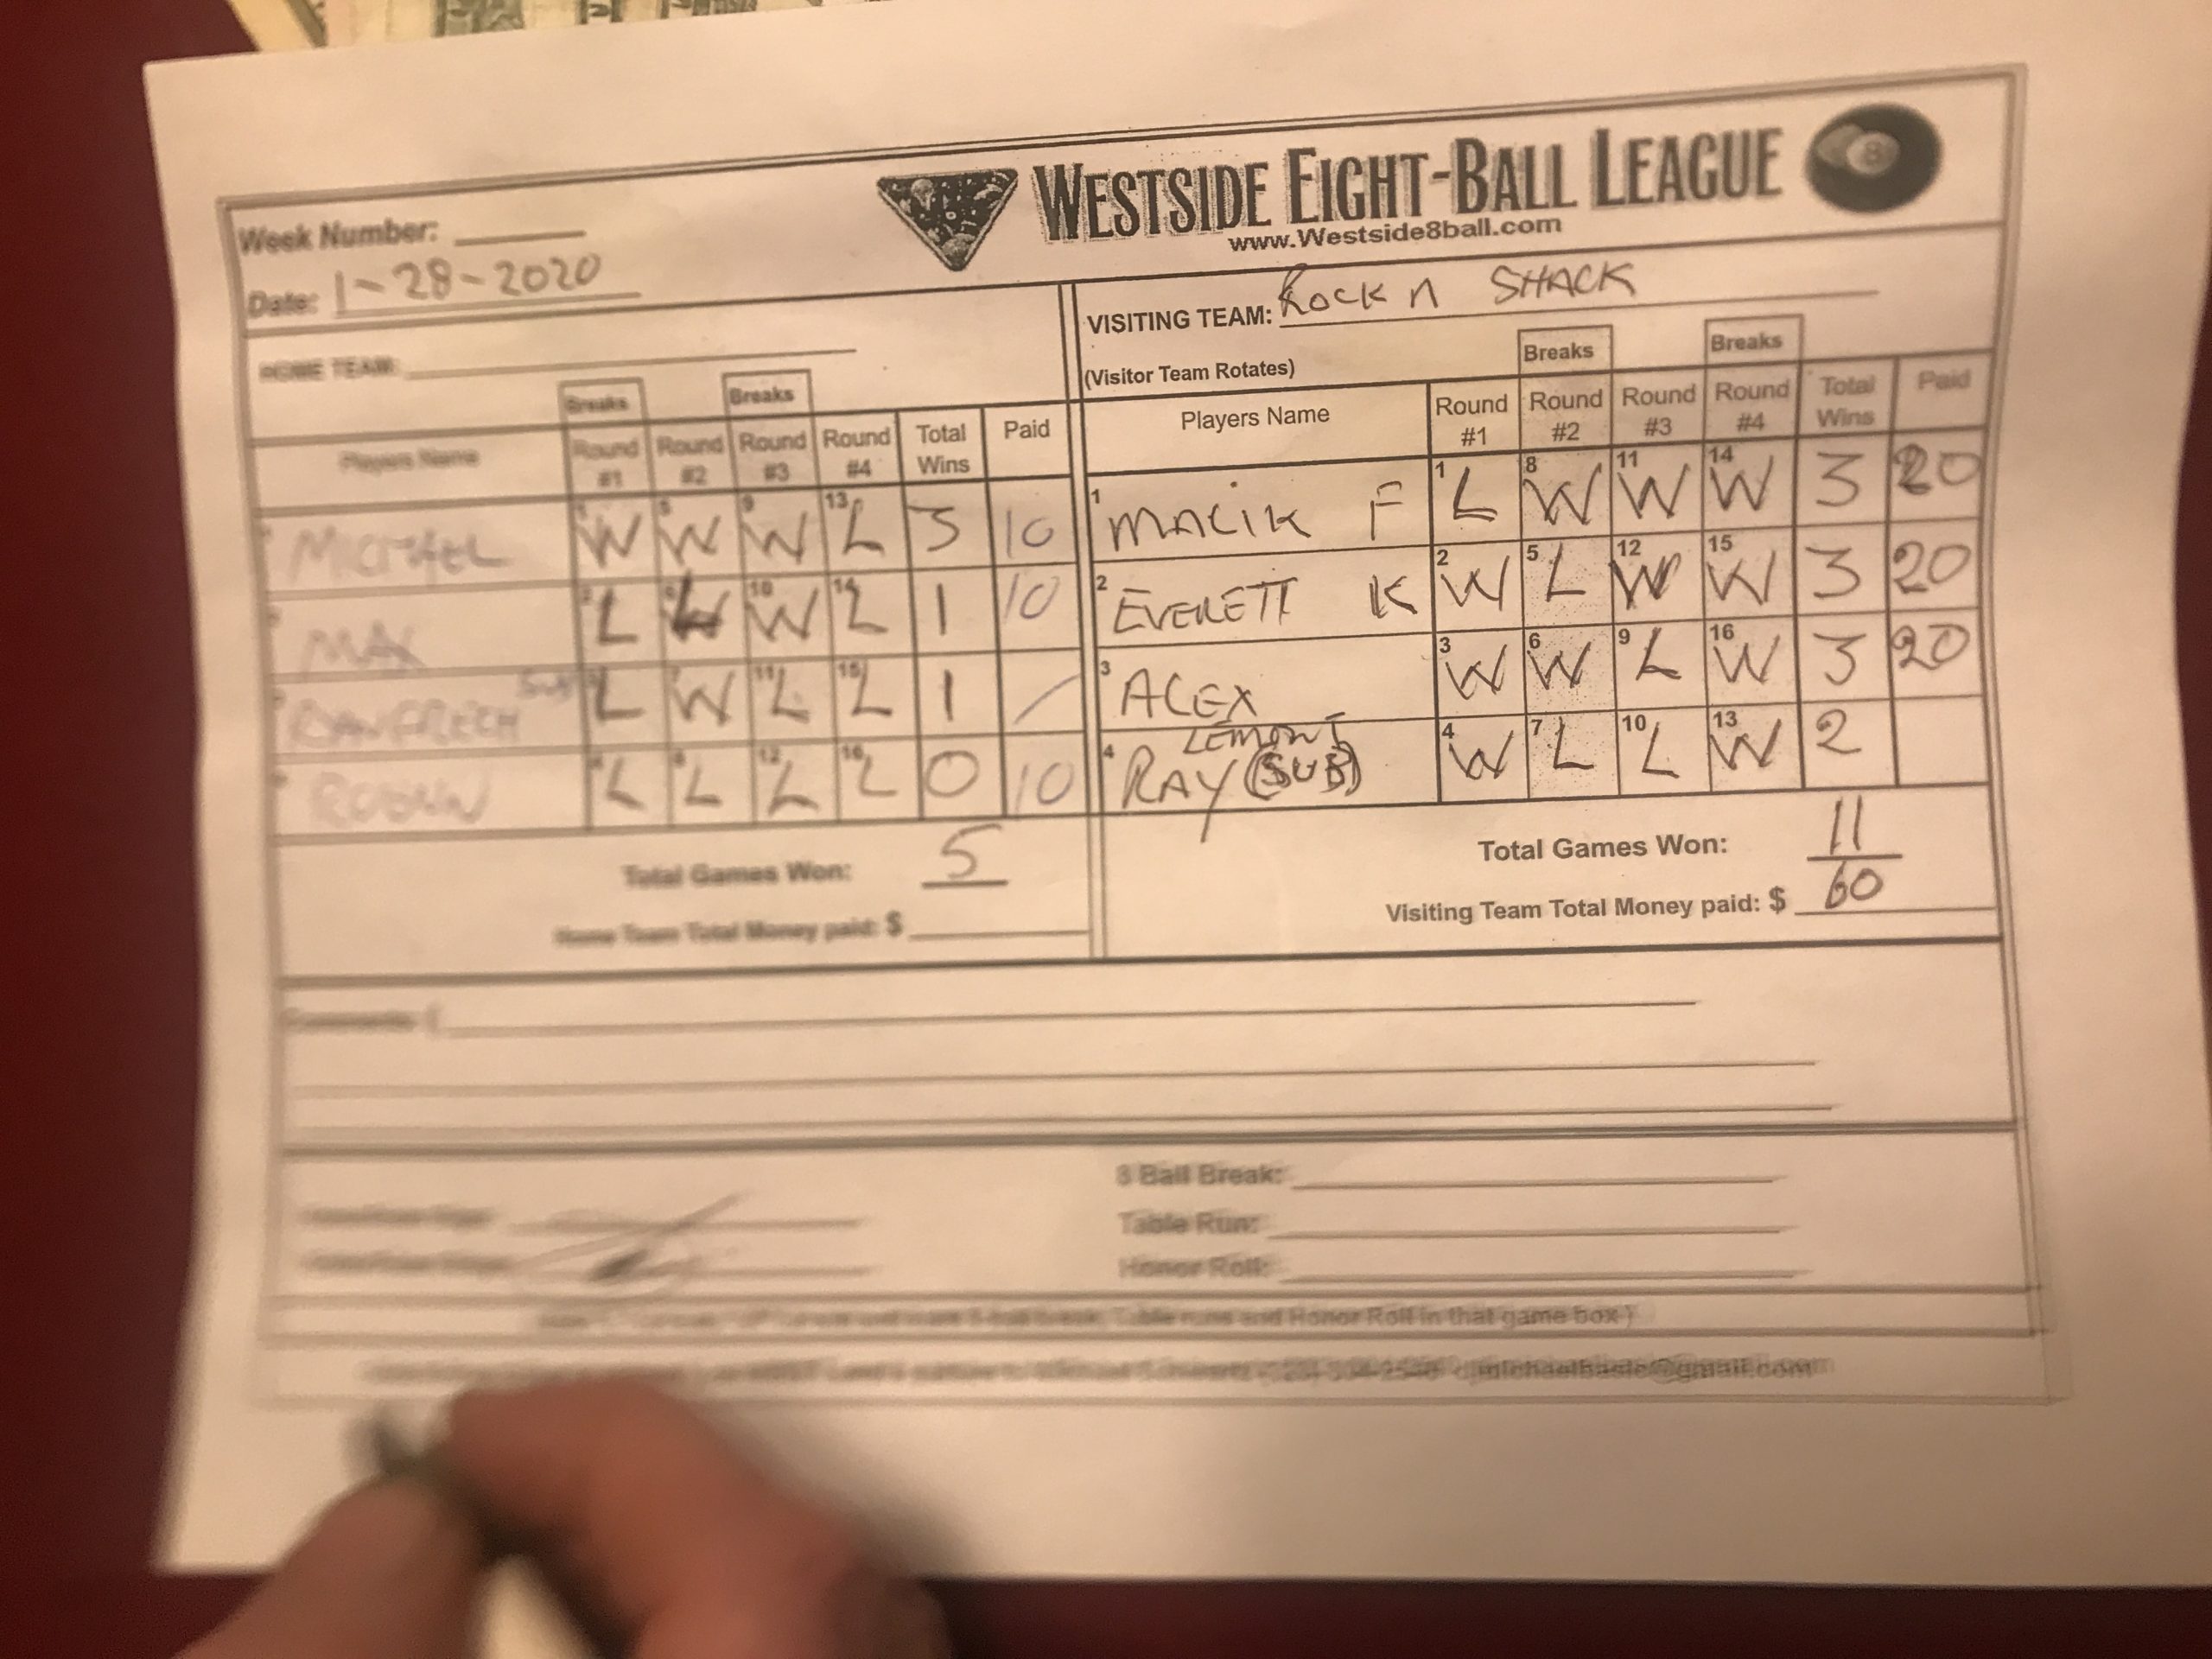 WESTSIDE EIGHT-BALL LEAGUE
www.Westside8ball.com
Week Number:
Date: 1-28-2020
HOME TEAM:
Breaks Breaks
Players Name Round #1 Round #2 Round #3 Round #4 Total Wins Paid
MICHAEL 1 W 5 W 9 W 13 L 3 10
MAX 2 L 6 L 10 W 14 L 1 10
RYAN FRECH SUB 3 L 7 W 11 L 15 L 1 /
4 L 8 L 12 L 16 L 0 10
Total Games Won: 5
Home Team Total Money paid: $
VISITING TEAM: ROCK n SHACK
(Visitor Team Rotates)
Breaks Breaks
Players Name Round #1 Round #2 Round #3 Round #4 Total Wins Paid
1 MALIK F 1 L 8 W 11 W 14 W 3 20
2 EVERETT K 2 W 5 L 12 W 15 W 3 20
3 ALEX 3 W 6 W 9 L 16 W 3 20
LEMONT
4 RAY (SUB) 4 W 7 L 10 L 13 W 2
Total Games Won: 11
Visiting Team Total Money paid: $ 60
Comments: (
8 Ball Break:
Table Run:
Honor Roll:
Table runs and Honor Roll in that game box)